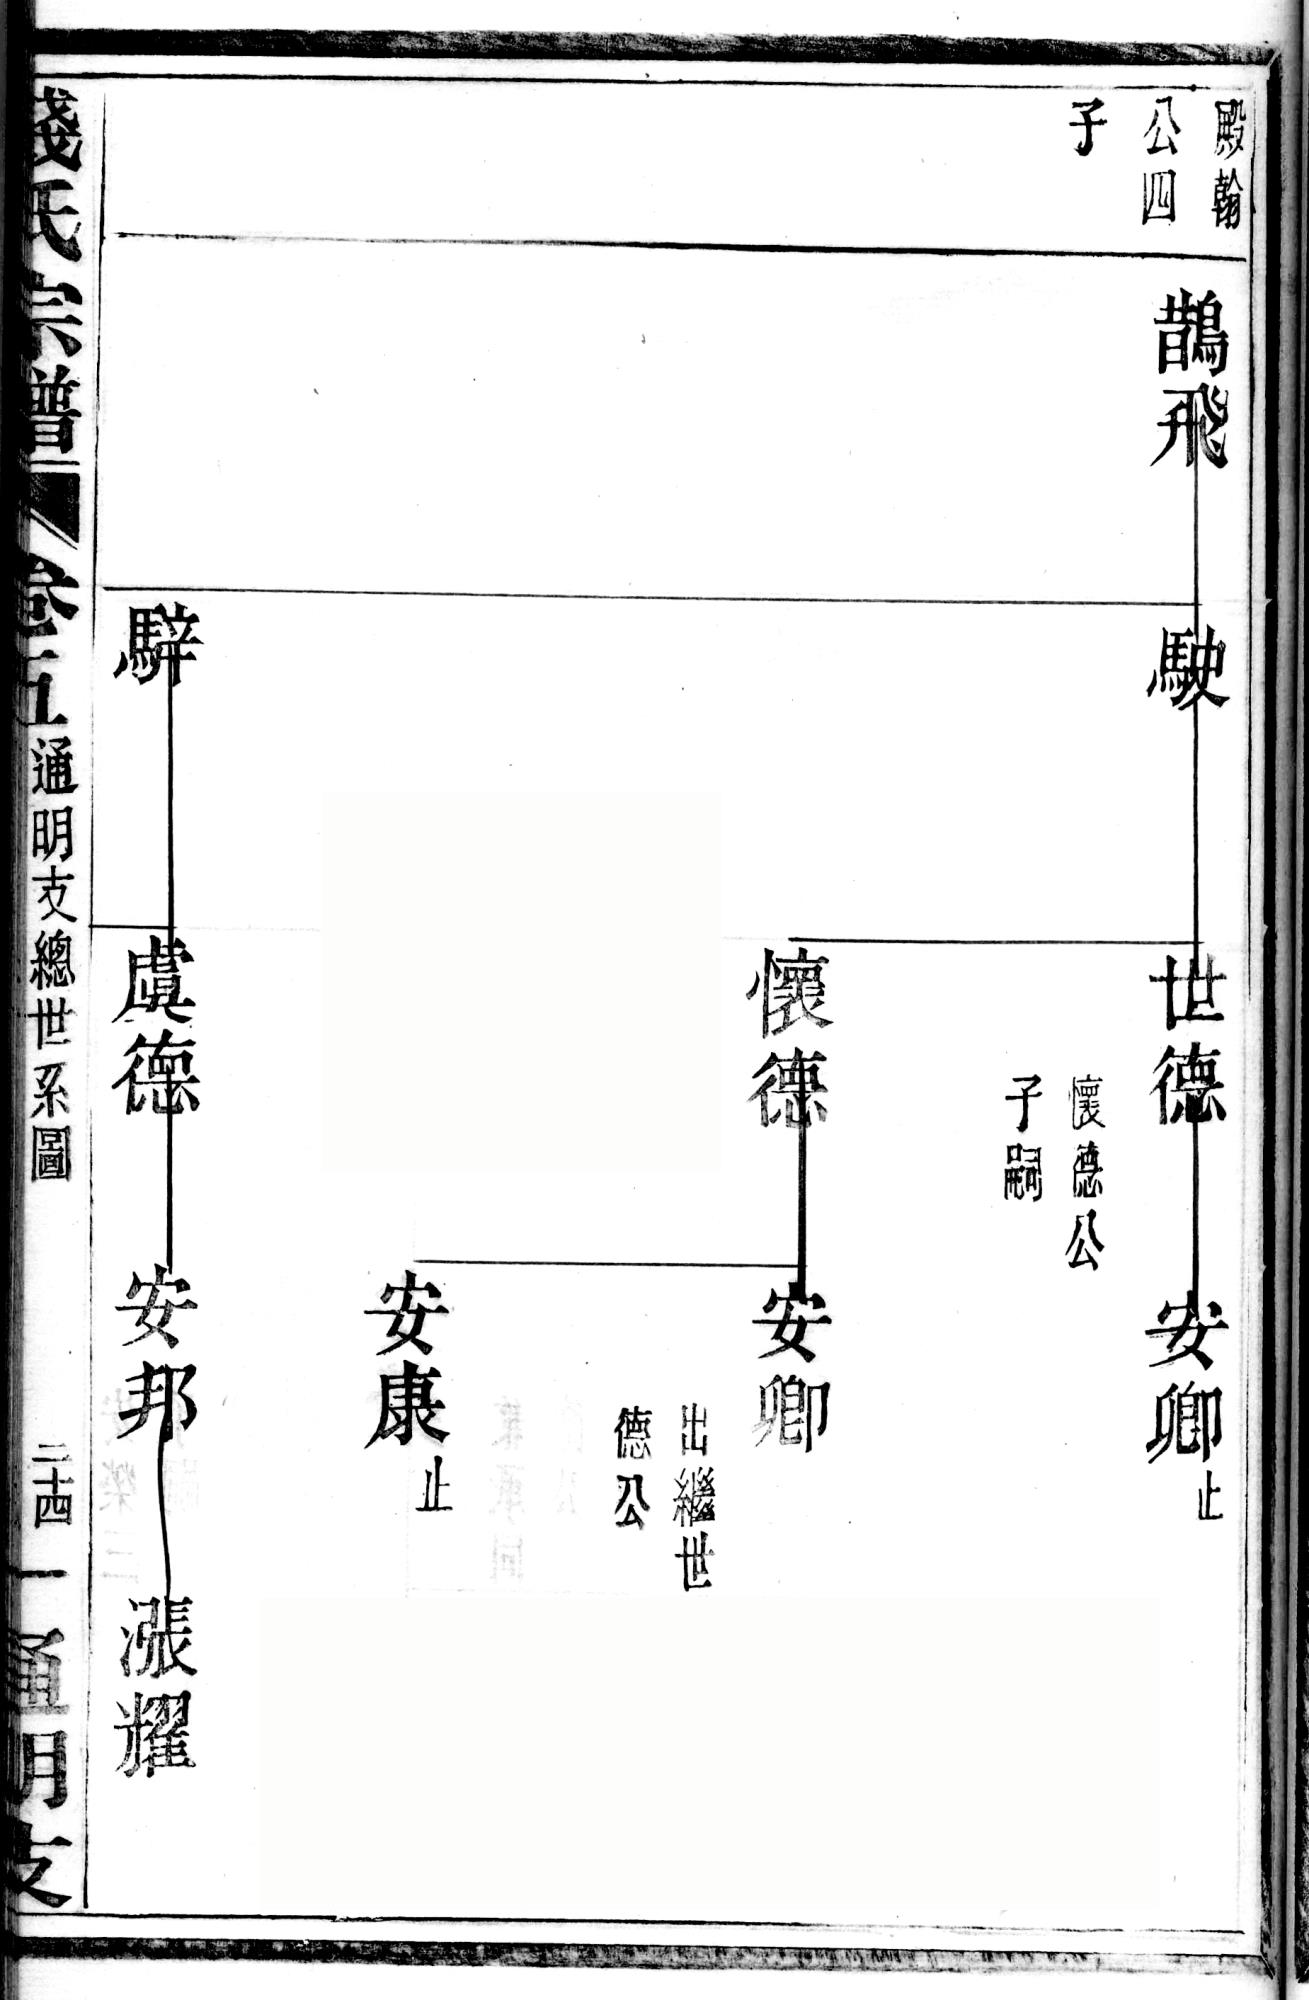 殿翰
公四
子
鵲飛
駛
世德
懷德公
子嗣
安卿
止
懷德
安卿
出繼世
德公
安康
止
騂
虞德
安邦
漲耀
錢氏宗譜
卷五
通明支總世系圖
二十四
一
通明支